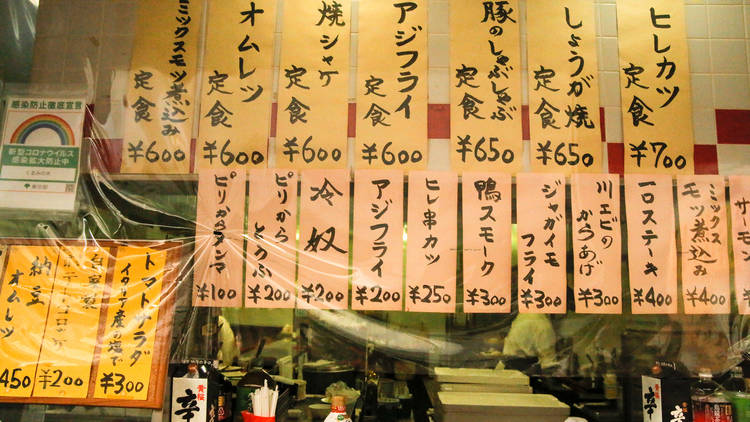 ヒレカツ定食
¥700
しょうが焼定食
¥650
豚のしゃぶしゃぶ定食
¥650
アジフライ定食
¥600
焼シャケ定食
¥600
オムレツ定食
¥600
ミックスモツ煮込み定食
¥600
サーモン
ミックスモツ煮込み
¥400
一口ステーキ
¥400
川エビのからあげ
¥300
ジャガイモフライ
¥300
鴨スモーク
¥300
ヒレ串カツ
¥250
アジフライ
¥200
冷奴
¥200
ピリからとうふ
¥200
ピリからタンマ
¥100
トマトサラダ
イタリア産の塩で
¥300
自家製
コロッケ
¥200
納豆オムレツ
450
感染防止徹底宣言
新型コロナウイルス
感染拡大防止中
東京都
黄桜
辛
黄桜
辛